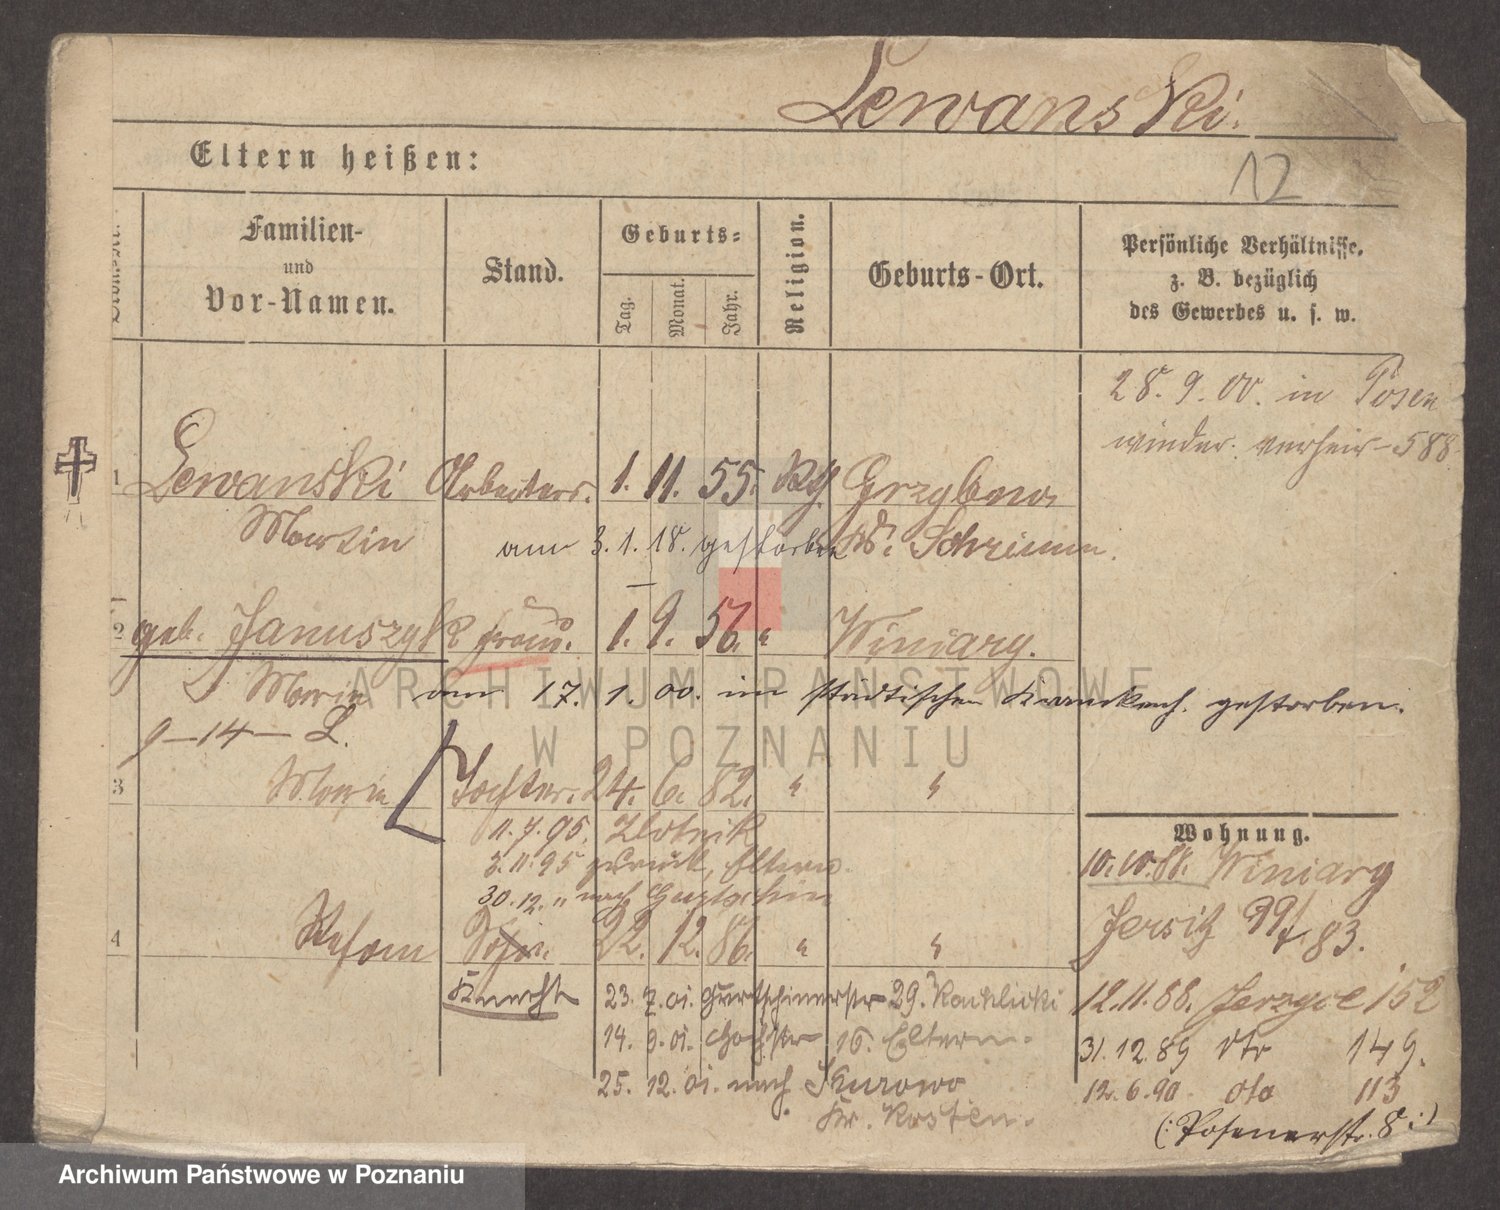 Lewanski.
12
Eltern heißen:
Familien-
und
Vor-Namen.
Stand.
Geburts-
Tag.
Monat.
Jahr.
Religion.
Geburts-Ort.
Persönliche Verhältnisse.
z. B. bezüglich
des Gewerbes u. s. w.
28. 9. 00. in Posen
wieder verheir. 588
1 Lewanski Arbeiter. 1. 11. 55. Grzybno
Martin
Kr. Schrimm.
am 3. 1. 18. gestorben
2 geb. Januszyk Frau. 1. 9. 56. " Winiary.
Maria am 17. 1. 00. im städtischen Krankenh. gestorben.
9-14- L.
3 Maria Tochter. 24. 6. 82. " "
11. 7. 95. Zlotnik
3. 11. 95 zurück, Eltern
30. 12. " nach Gurtschin
4 Stefan Sohn. 22. 12. 86. " "
Knecht 23. 7. 01. Gurtschinerstr 29.
14. 9. 01. 16. Eltern.
25. 12. 01. nach Kurowo
Kr. Kosten.
Wohnung.
10. 10. 88. Winiary
Jersitz 99/83.
12. 11. 88. Jerzyce 152
31. 12. 89 dto 149.
12. 6. 90. dto 113
(: Posenerstr. 8 :)
ARCHIWUM PAŃSTWOWE
W POZNANIU
Archiwum Państwowe w Poznaniu